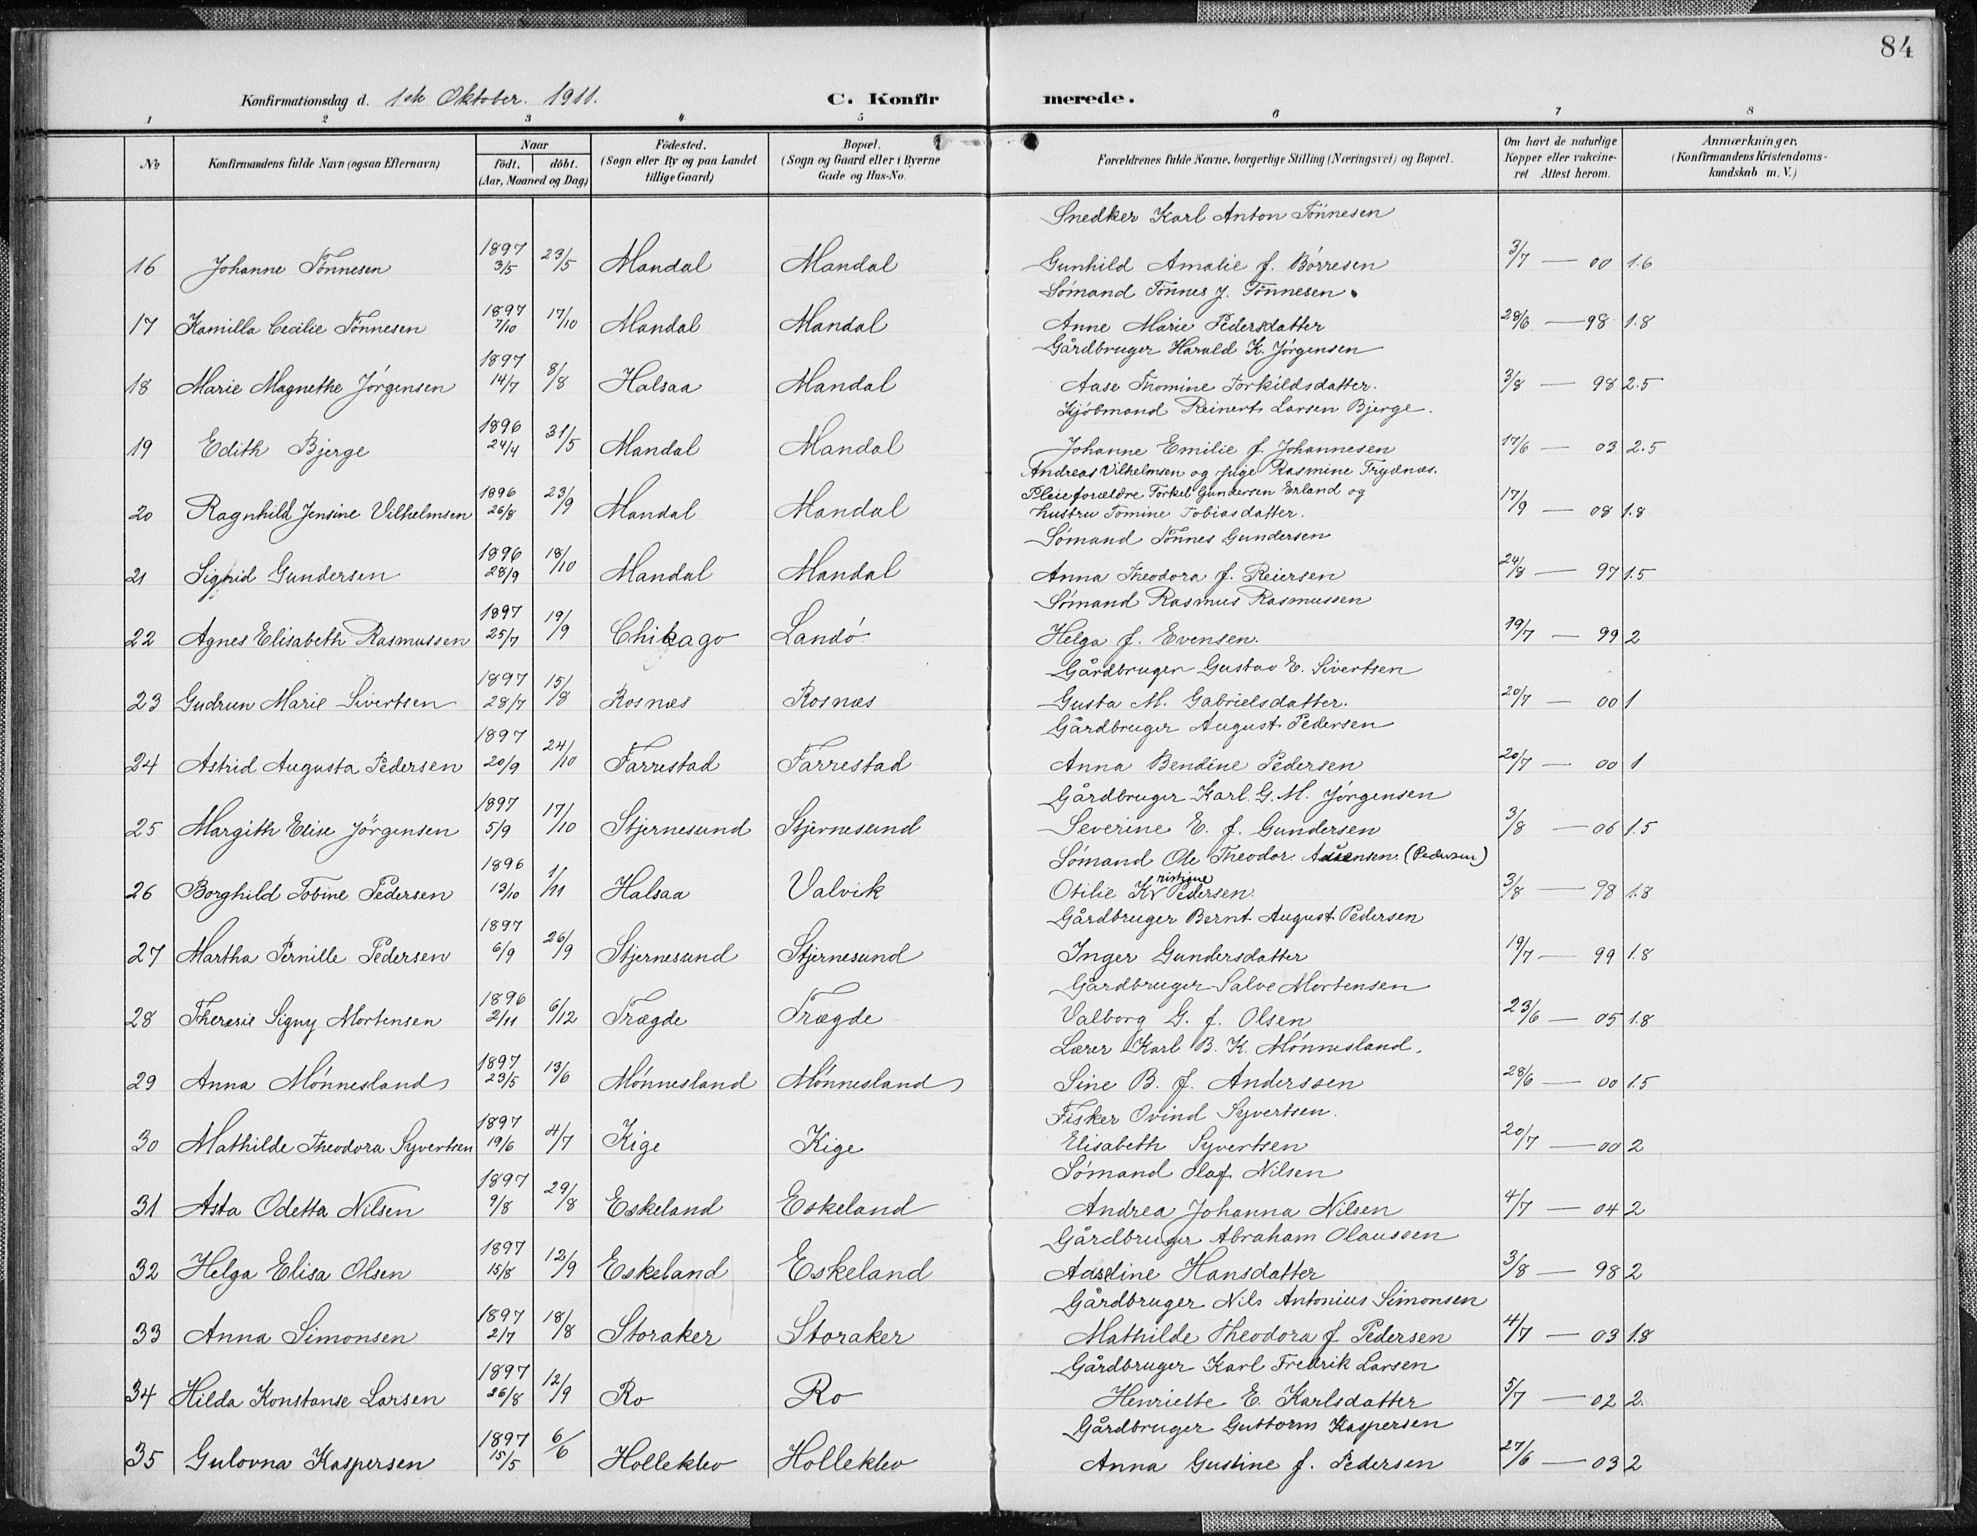 84
Konfirmationsdag d. 1ste Oktober. 1911. C. Konfirmerede.
1 2 3 4 5 6 7 8
No Konfirmandens fulde Navn (ogsaa Efternavn) Naar født. døbt. (Aar, Maaned og Dag) Fødested. (Sogn eller By og paa Landet tillige Gaard) Bopæl. (Sogn og Gaard eller i Byerne Gade og Hus-No. Forældrenes fulde Navne, borgerlige Stilling (Næringsvei) og Bopæl. Om havt de naturlige Kopper eller vakcineret Attest herom. Anmærkninger. (Konfirmandens Kristendomskundskab m. V.)
Snedker Karl Anton Tønnesen
16 Johanne Tønnesen 1897 3/5 23/5 Mandal Mandal Gunhild Amalie f. Børresen 3/7 — 00 1.6
Sømand Tønnes J. Tønnesen.
17 Kamilla Cecilie Tønnesen 1897 7/10 17/10 Mandal Mandal Anne Marie Pedersdatter 28/6 — 98 1.8
Gårdbruger Harald K. Jørgensen
18 Marie Magnethe Jørgensen 1897 14/7 8/8 Halsaa Mandal Aase Thomine Torkildsdatter. 3/8 — 98 2.5
Kjøbmand Reinert Larsen Bjerge.
19 Edith Bjerge 1896 24/4 31/5 Mandal Mandal Johanne Emilie f. Johannesen 17/6 — 03 2.5
Andreas Vilhelmsen og pige Rasmine Trydnæs.
Pleieforældre Torkel Gundersen Erland og
20 Ragnhild Jensine Vilhelmsen 1896 26/8 23/9 Mandal Mandal hustru Tomine Tobiasdatter. 17/9 — 08 1.8
Sømand Tønnes Gundersen
21 Sigrid Gundersen 1896 28/9 18/10 Mandal Mandal Anna Theodora f. Reiersen 24/8 — 97 1.5
Sømand Rasmus Rasmussen
22 Agnes Elisabeth Rasmussen 1897 25/7 19/9 Chikago Landø Helga f. Evensen. 19/7 — 99 2
Gårdbruger Gustav E. Sivertsen
23 Gudrun Marie Sivertsen 1897 28/7 15/8 Rosnæs Rosnæs Gusta M. Gabrielsdatter. 20/7 — 00 1
Gårdbruger August Pedersen
24 Astrid Augusta Pedersen 1897 20/9 24/10 Farrestad Farrestad Anna Bendine Pedersen 20/7 — 00 1
Gårdbruger Karl G. M. Jørgensen
25 Margith Elise Jørgensen 1897 5/9 17/10 Stjernesund Stjernesund Severine E. f. Gundersen 3/8 — 06 1.5
Sømand Ole Theodor (Pedersen)
26 Borghild Tobine Pedersen 1896 13/10 1/11 Halsaa Valvik Otilie Kristine Pedersen. 3/8 — 98 1.8
Gårdbruger Bernt August Pedersen
27 Martha Pernille Pedersen 1897 6/9 26/9 Stjernesund Stjernesund Inger Gundersdatter 19/7 — 99 1.8
Gårdbruger Salve Mortensen
28 Therese Signy Mortensen 1896 2/11 6/12 Trægde Trægde Valborg G. f. Olsen 23/6 — 05 1.8
Lærer Karl B. K. Mønnesland.
29 Anna Mønnesland 1897 23/5 13/6 Mønnesland Mønnesland Sine B. f. Anderssen 28/6 — 00 1.5
Fisker Ovind Syvertsen.
30 Mathilde Theodora Syvertsen 1897 19/6 4/7 Kige Kige Elisabeth Syvertsen 20/7 — 00 2
Sømand Olaf Nilsen
31 Asta Odetta Nilsen 1897 9/8 29/8 Eskeland Eskeland Andrea Johanna Nilsen 4/7 — 04 2
Gårdbruger Abraham Olaussen
32 Helga Elisa Olsen 1897 15/8 12/9 Eskeland Eskeland Hansdatter 3/8 — 98 2
Gårdbruger Nils Antonius Simonsen
33 Anna Simonsen 1897 2/7 18/8 Storaker Storaker Mathilde Theodora f Pedersen 4/7 — 03 1.8
Gårdbruger Karl Fredrik Larsen
34 Hilda Konstanse Larsen 1897 26/8 12/9 Ro Ro Henriette E. Karlsdatter 5/7 — 02 2.
Gårdbruger Guttorm Kaspersen
35 Gulovna Kaspersen 1897 15/5 6/6 Holleklev Holleklev Anna Gustine f. Pedersen 27/6 — 03 2